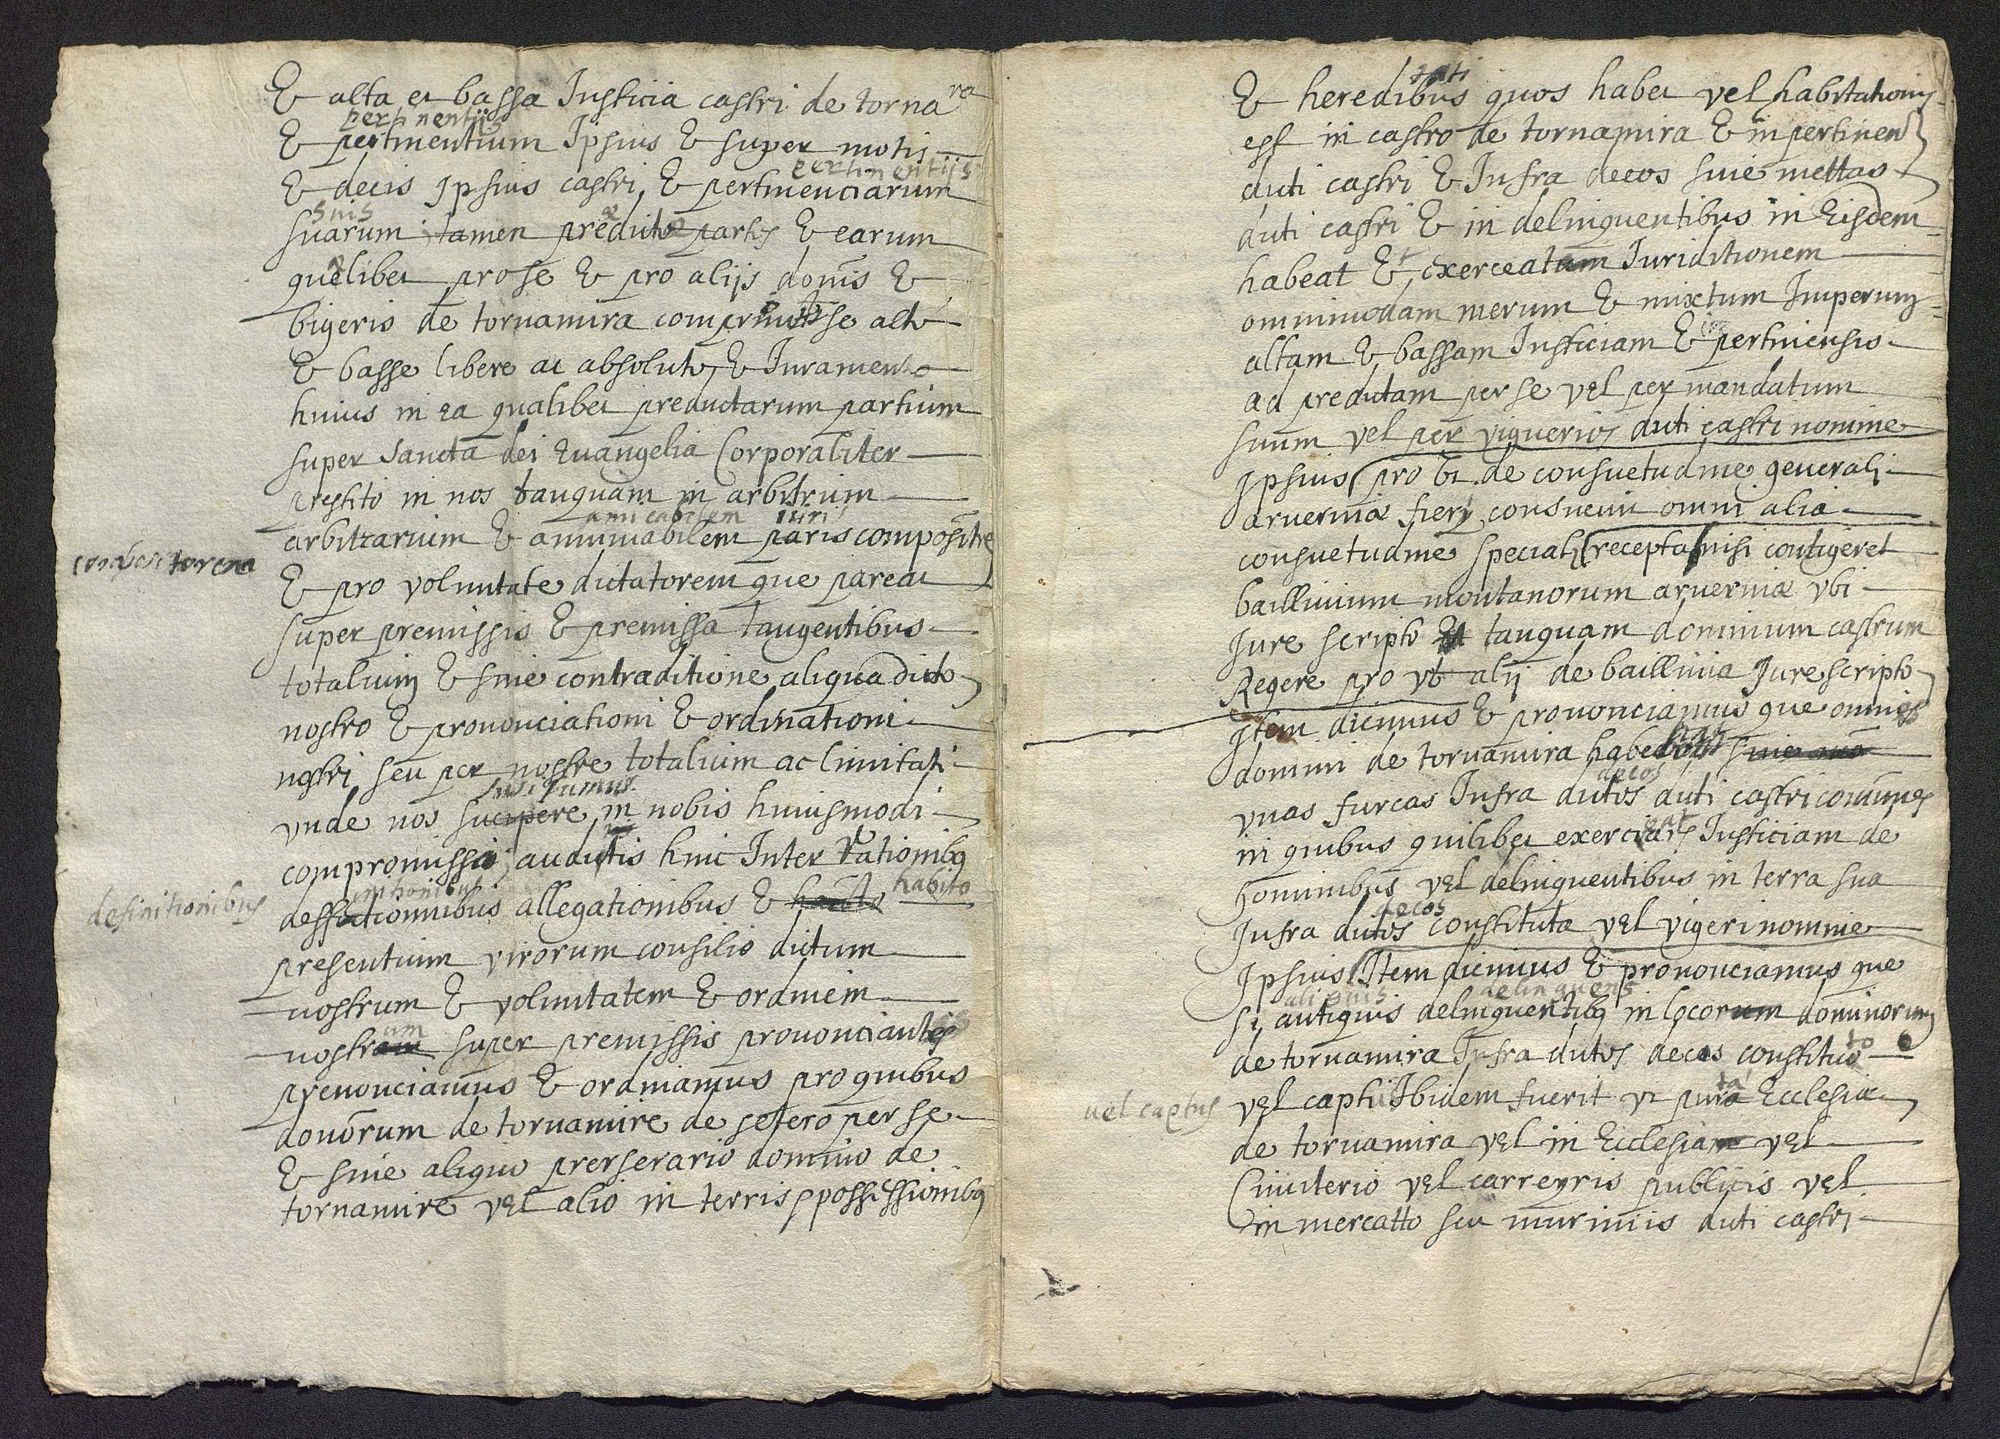 Et alta et bassa Justicia castri de torna ra
pertinentijs
Et pertinentium Ipsius Et super motis
pertinentijs
Et decis Ipsius castri Et pertinenciarum
suis
suarum tamen predicte partes Et earum
quelibet pro se Et pro alijs donis Et
bigeris de tornamira se alte
Et basse libere ac absolute Et Iuramento
huius in ea qualibet predictarum partium
super sancta dei Evangelia Corporaliter
prestito in nos tanquam in arbitrum
amicabilem iuris
arbitrarium Et animiabilem paris compositre
compositorem
Et pro voluntate dictatorem que pareat
super premissis Et premissa tangentibus
totalium Et sine contraditione aliqua dicto
nostro Et prononciationi Et ordinationi
nostri seu per nostre totalium ac limitati
suscipimus
vnde nos sucipere in nobis huiusmodi
compromissio auditis hinc Inter rationibq
definitionibus habito
allegationibus Et
presentium virorum consilio dictum
nostrum Et voluntatem Et ordinem
um
nostram super premissis prononciantes
prenonciamus Et ordiniamus pro quibus
donorum de tornamire de setero per se
Et sine aliquo prerserario domino de
tornamire vel alio in terris ppossessionibq
tati
Et heredibus quos habet vel habitationis
est in castro de tornamira Et in pertinen
duti castri Et Infra decos sine mettas
duti castri Et in delinquentibus in Eisdem
habeat Et exerceatum Iuriditionem
ommimodam merum Et mixtum Imperium
altam Et bassam Justiciam Et pertinensis
ad predictam per se vel per mandatum
suum vel per viguerios duti castri nomine
Ipsius pro vt de consuetudine generali
arverniæ fieri consuevit omni alia
consuetudine speciali recepta nisi contigeret
baillivium montanorum arverniæ vbi
Jure scripto tanquam dominium castrum
Regere pro vt alij de baillivia Jure scripto
Item dicimus Et prononciamus que omnies
domini de tornamira
decos
vnas furcas Infra dutos duti castri comunes
in quibus quilibet Justiciam de
hominibus vel delinquentibus in terra sua
decos
Infra dutos constituta vel vigeri nomine
Ipsius Item dicimus Et prononciamus que
aliquis delinquens
si autiquis delinquentibq in locorum dominorum
de tornamira Infra dutos decos constituto
vel captus
vel capti Ibidem fuerit vt puta Ecclesiæ
de tornamira vel in Ecclesiam vel
Cimiterio vel carreyris publicis vel
in mercatto seu muriniis duti castri